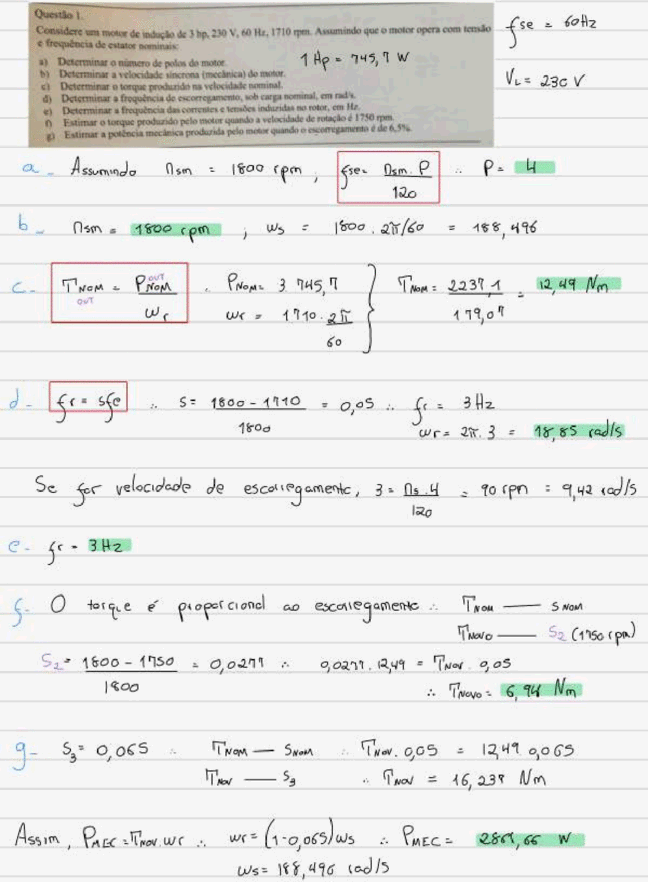 Questão 1.
Considere um motor de indução de 3 hp, 230 V, 60 Hz, 1710 rpm. Assumindo que o motor opera com tensão
e frequência de estator nominais:
a) Determinar o número de polos do motor.
b) Determinar a velocidade síncrona (mecânica) do motor.
c) Determinar o torque produzido na velocidade nominal.
d) Determinar a frequência de escorregamento, sob carga nominal, em rad/s.
e) Determinar a frequência das correntes e tensões induzidas no rotor, em Hz.
f) Estimar o torque produzido pelo motor quando a velocidade de rotação é 1750 rpm.
g) Estimar a potência mecânica produzida pelo motor quando o escorregamento é de 6,5%.
1 Hp = 745,7 W
fse = 60Hz
VL = 230 V
a- Assumindo nsm = 1800 rpm, fse = nsm. P / 120 ∴ P = 4
b- nsm = 1800 rpm ; ws = 1800. 2π/60 = 188,496
c- TNOM OUT = PNOM OUT / wr ∴ PNOM = 3 745,7 } TNOM = 2237,1 / 179,07 = 12,49 Nm
wr = 1710. 2π / 60
d- fr = sfe ∴ s = 1800 - 1710 / 1800 = 0,05 ∴ fr = 3Hz
wr = 2π. 3 = 18,85 rad/s
Se for velocidade de escorregamento, 3 = ns. 4 / 120 = 90 rpm = 9,42 rad/s
e- fr = 3Hz
f- O torque é proporcional ao escorregamento ∴ TNOM — SNOM
TNOVO — S2 (1750 rpm)
S2 = 1800 - 1750 / 1800 = 0,0277 ∴ 0,0277. 12,49 = TNOV. 0,05
∴ TNOVO = 6,94 Nm
g- S3 = 0,065 ∴ TNOM — SNOM ∴ TNOV. 0,05 = 12,49 0,065
TNOV — S3 ∴ TNOV = 16,237 Nm
Assim, PMEC = TNOV. wr ∴ wr = (1-0,065)ws ∴ PMEC = 2861,66 W
ws = 188,496 rad/s